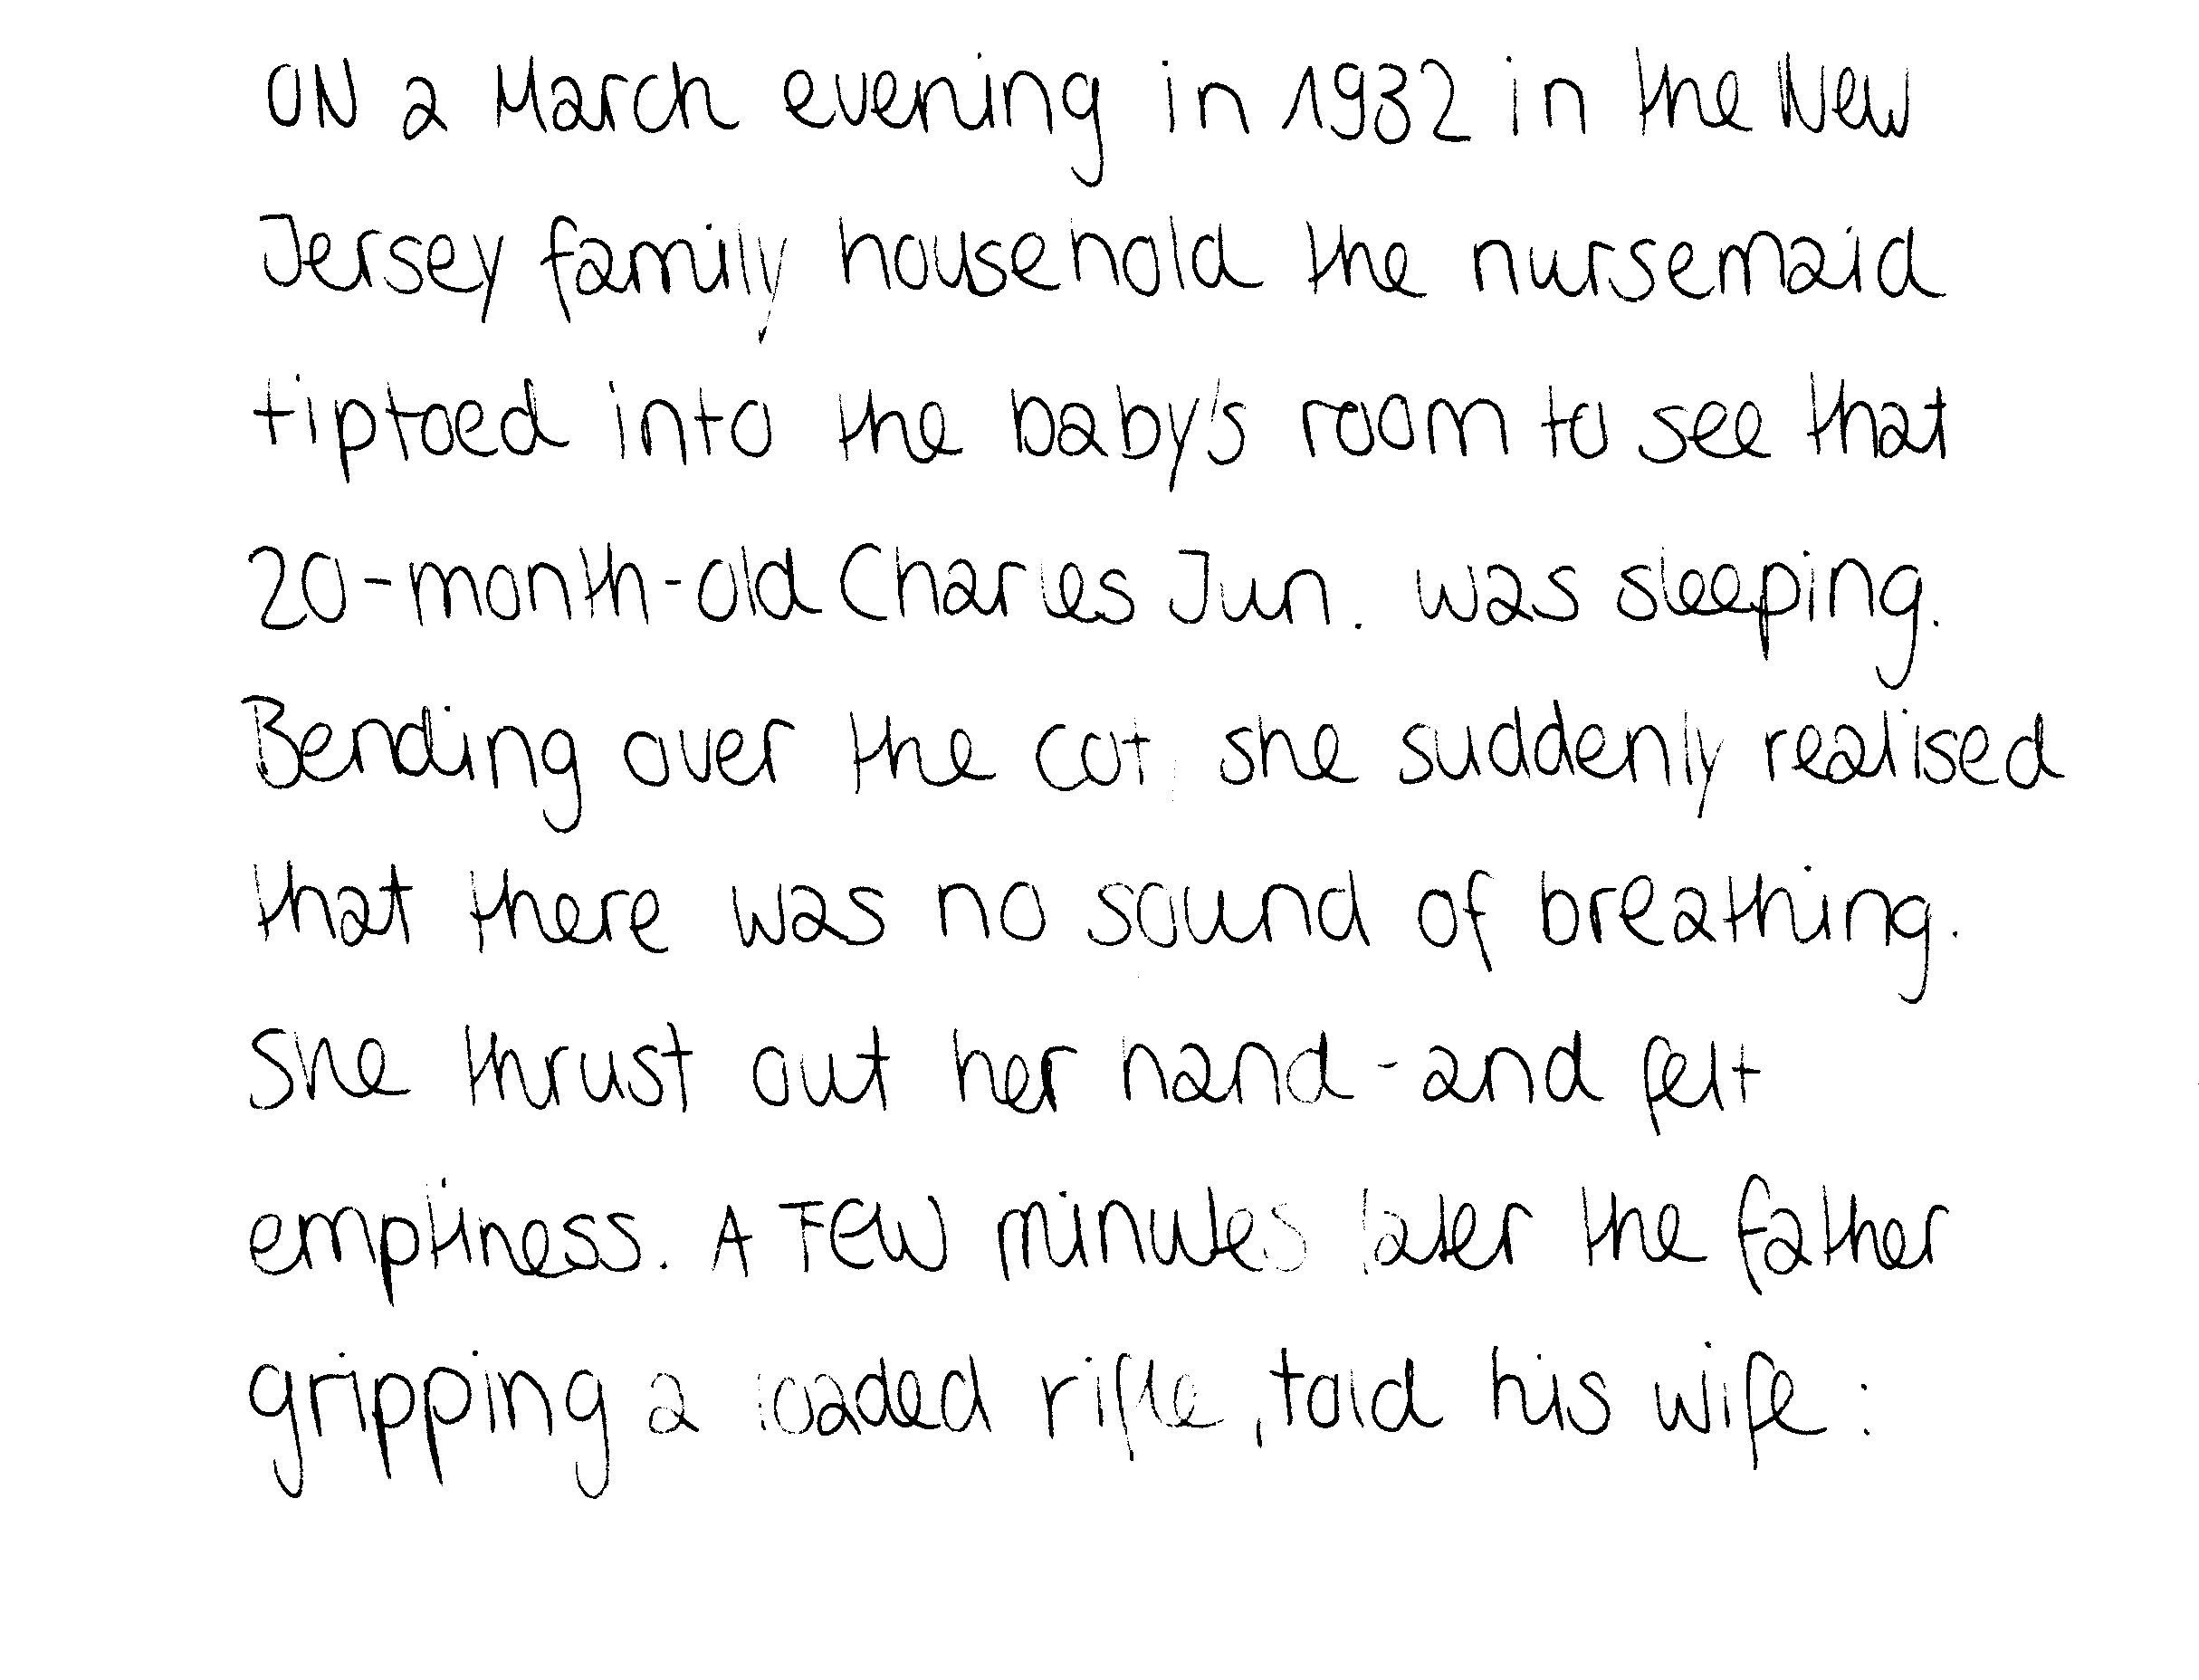 ON a March evening in 1932 in the New
Jersey family household the nursemaid
tiptoed into the baby's room to see that
20-month-old Charles Jun. was sleeping.
Bending over the cot, she suddenly realised
that there was no sound of breathing.
She thrust out her hand - and felt
emptiness. A FEW minutes later the father
gripping a loaded rifle, told his wife: